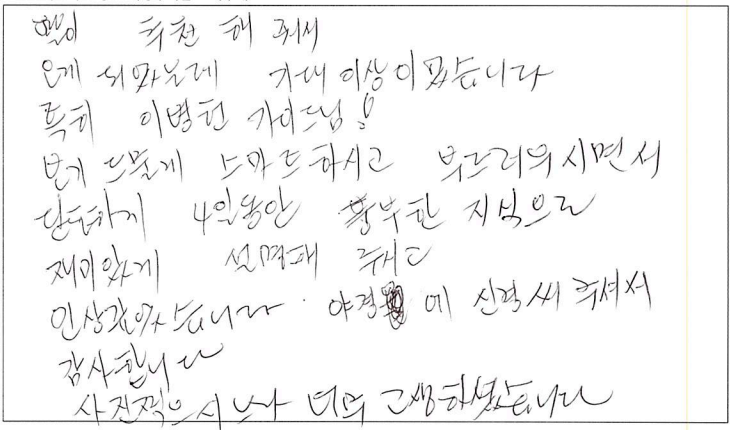 딸이 추천 해 줘서
오게 되었는데 기대 이상이였습니다
특히 이병헌 가이드님!
보기 드물게 스마트하시고 부드러우시면서
단호하게 4일동안 풍부한 지식으로
재미있게 설명해 주시고
인상깊었습니다. 야경 에 신경써 주셔서
감사합니다
사진찍으시느라 너무 고생하셨습니다